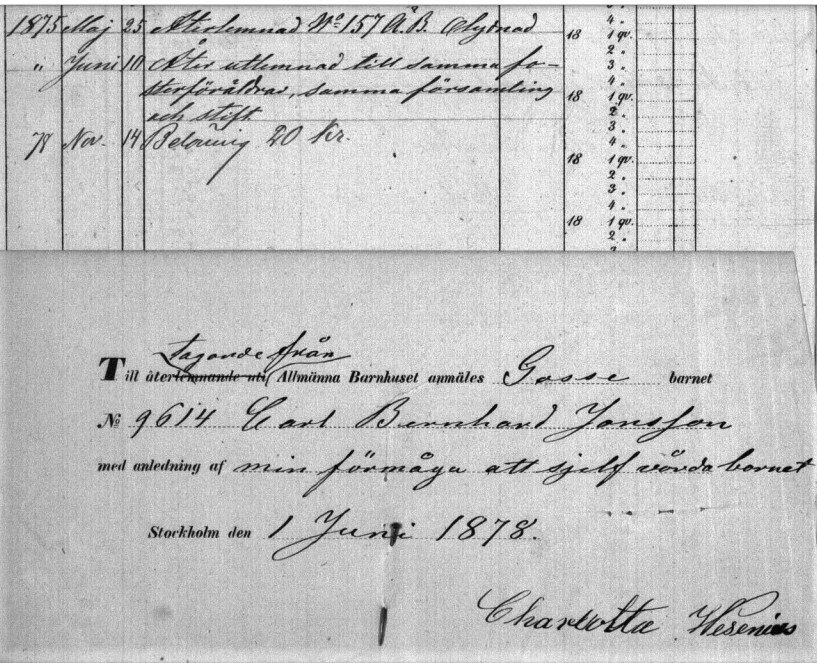 1875 Maj 25 Återlemnad No 157 Å.B. Olydnad
" Juni 10 Åter utlemnad till samma fo-
sterföräldrar, samma församling
och stift
78 Nov. 14 Belöning 20 kr.
4.
18 1 qv.
2.
3.
4.
18 1 qv.
2.
3.
4.
18 1 qv.
2.
3.
4.
18 1 qv.
2.
Tagande från
Till återlemnande uti Allmänna Barnhuset anmäles Gosse barnet
No 9614 Carl Bernhard Jonsson
med anledning af min förmåga att sjelf vårda barnet
Stockholm den 1 Juni 1878.
Charlotta Wesenius